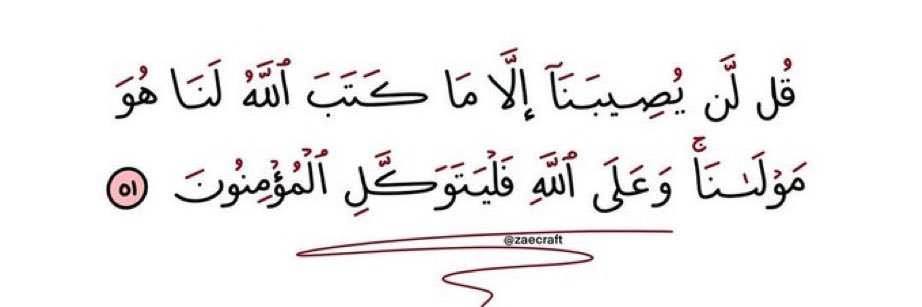 قُل لَّن يُصِيبَنَآ إِلَّا مَا كَتَبَ ٱللَّهُ لَنَا هُوَ
مَوْلَىٰنَا ۚ وَعَلَى ٱللَّهِ فَلْيَتَوَكَّلِ ٱلْمُؤْمِنُونَ ٥١
@zaecraft